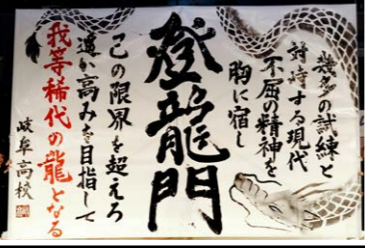 幾多の試練と
対峙する現代
不屈の精神を
胸に宿し
登龍門
己の限界を超えろ
遥か高みを目指して
我等稀代の龍となる
岐阜高校